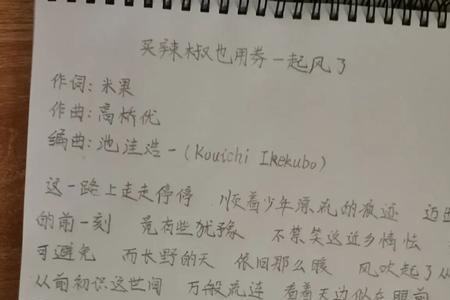 买辣椒也用券－起风了
作词:米果
作曲:高桥优
编曲:池洼浩一(Kouichi Ikekubo)
这一路上走走停停 顺着少年漂流的痕迹 迈出
的前一刻 竟有些犹豫 不禁笑这近乡情怯
可避免 而长野的天 依旧那么暖 风吹起了从
从前初识这世间 万般流连 看着天边似在眼前